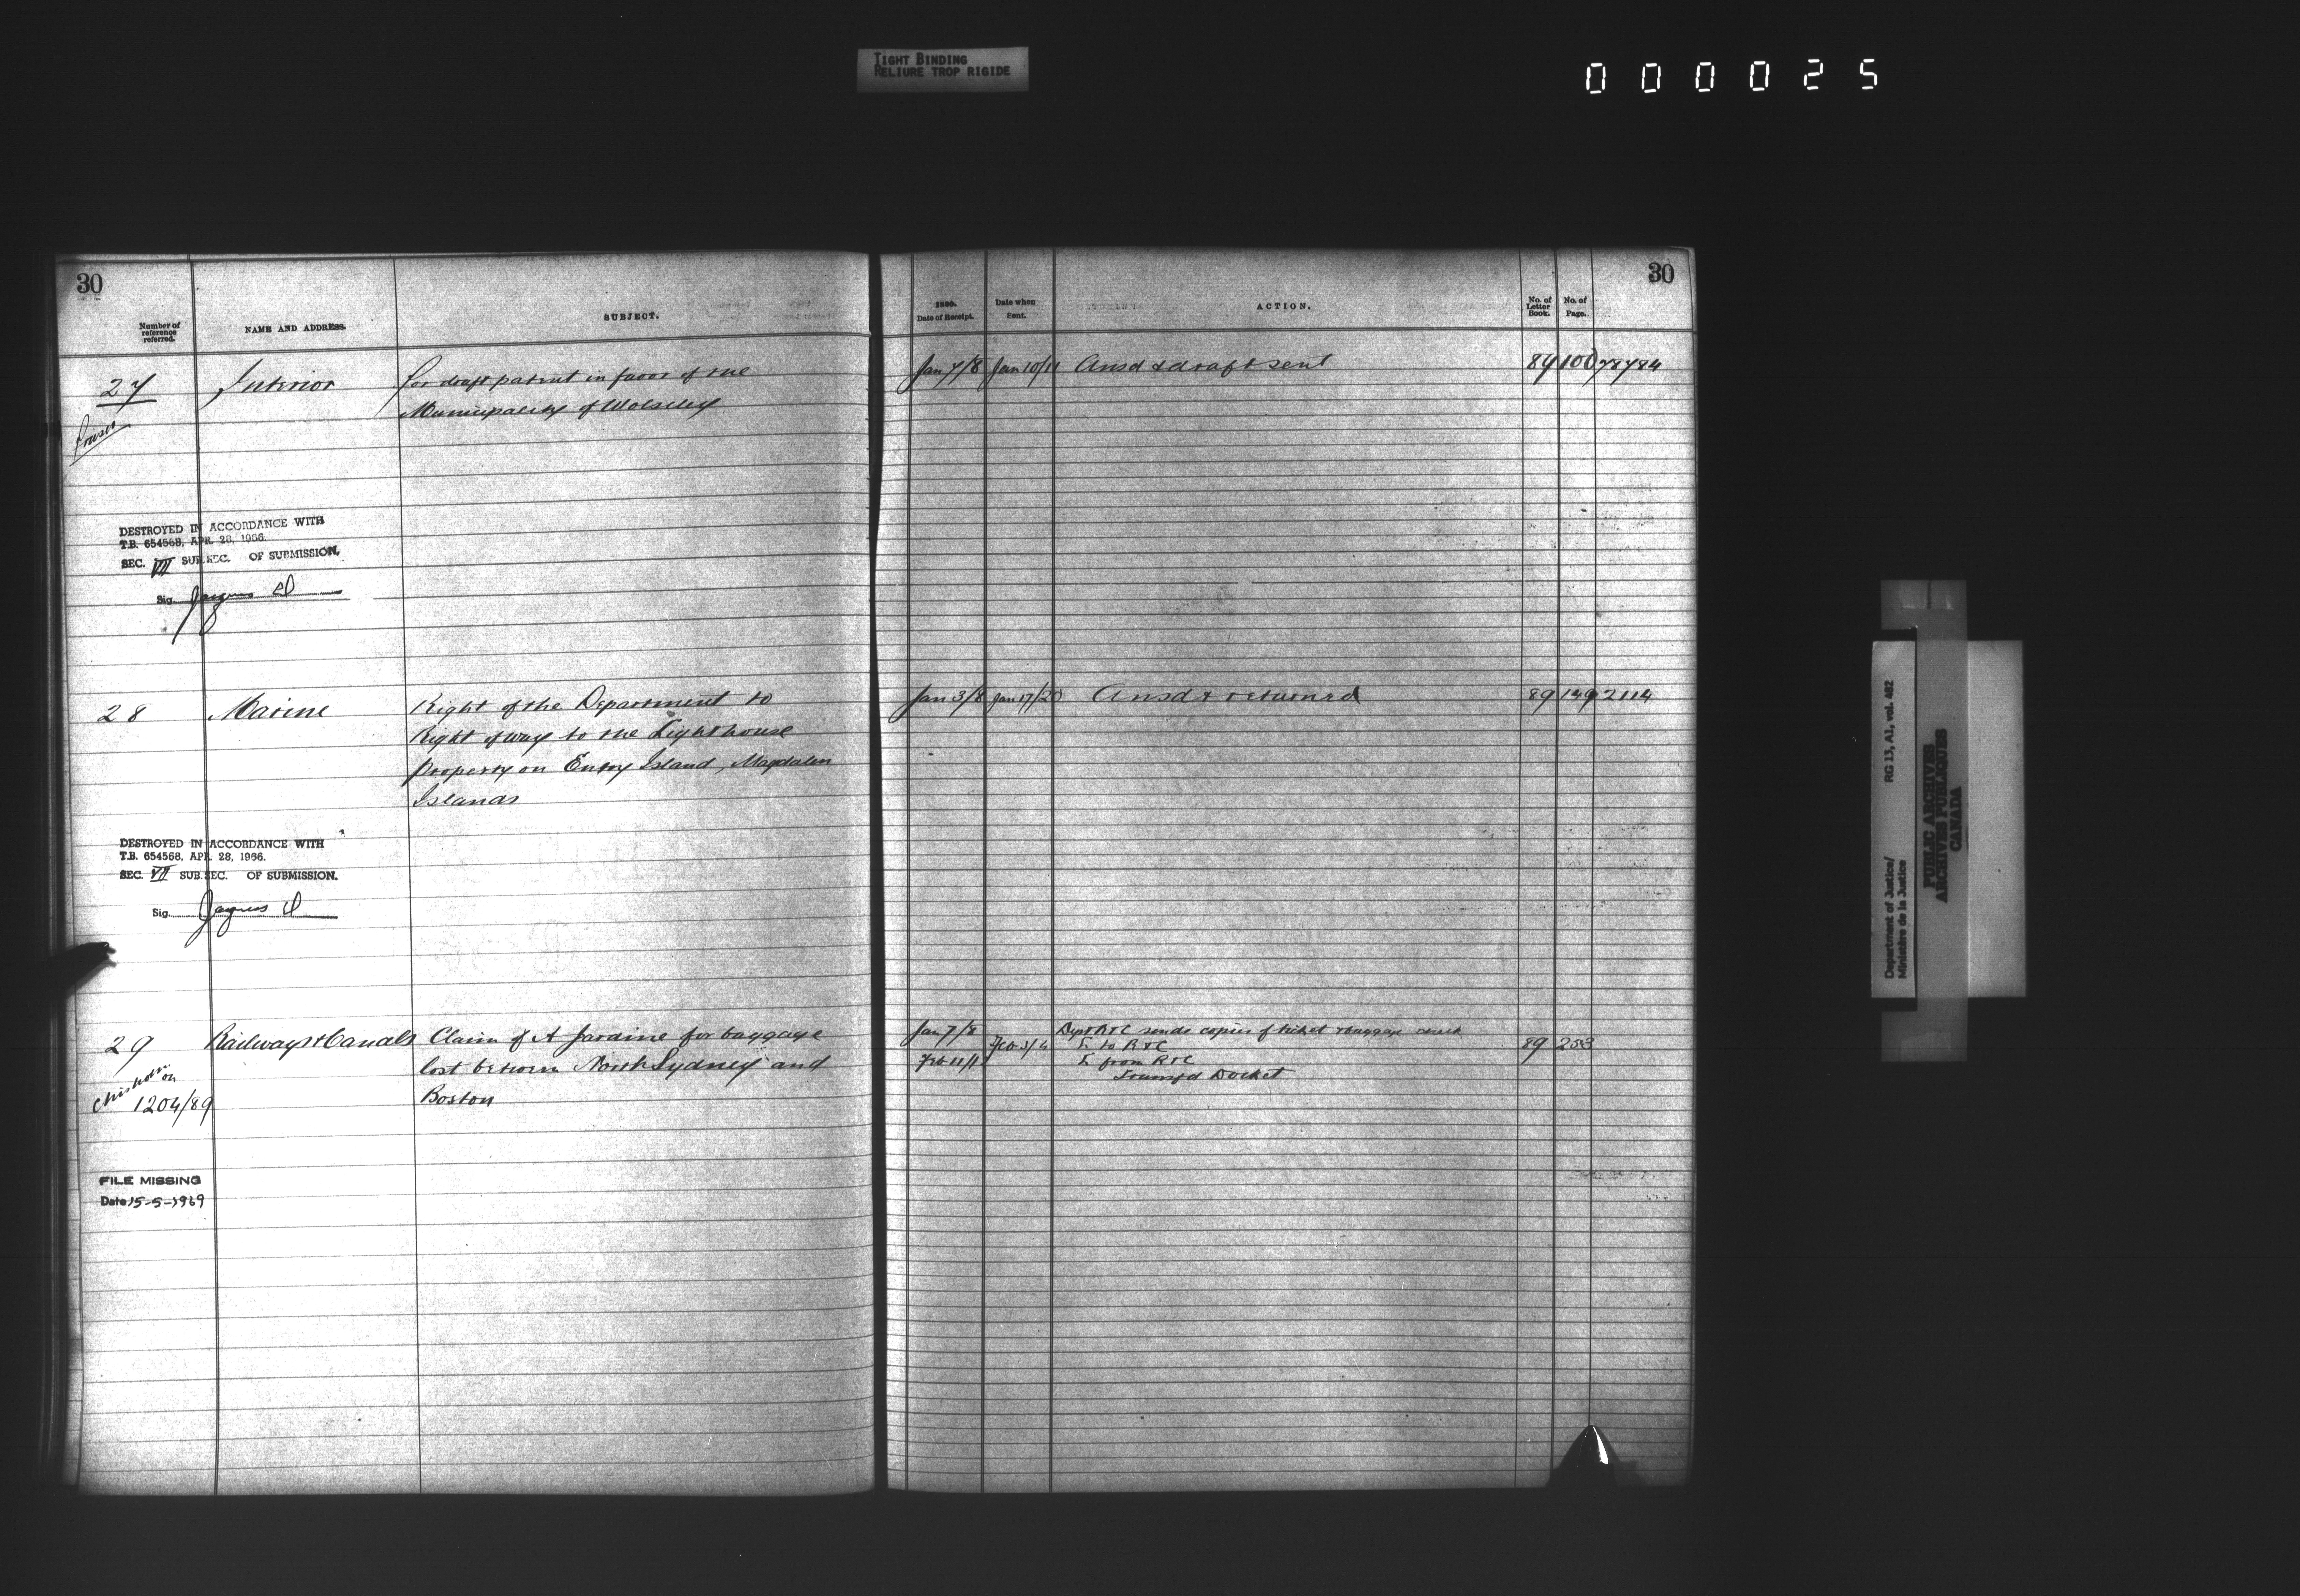 TIGHT BINDING
RELIURE TROP RIGIDE
000025
30
Number of
reference
referred.
NAME AND ADDRESS.
SUBJECT.
27
Interior
for draft patent in favor of the
Municipality of Wolseley
Fraser
DESTROYED IN ACCORDANCE WITH
T.B. 654568, APR. 28, 1966.
SEC. VII SUB.SEC. OF SUBMISSION.
Sig.
28
Marine
Right of the Department to
right of way to the Lighthouse
property on Entry Island, Magdalen
Islands
DESTROYED IN ACCORDANCE WITH
T.B. 654568, APR. 28, 1966.
SEC. VII SUB.SEC. OF SUBMISSION.
Sig.
29
Railways & Canals
Claim of A Jardine for baggage
lost between North Sydney and
Boston
Chisholm
on
1204/89
FILE MISSING
Date 15-5-1969
30
1890.
Date of Receipt.
Date when
Sent.
ACTION.
No. of
Letter
Book.
No. of
Page.
Jan 7/8 Jan 10/11 Ansd & draft sent 89 100 78784
Jan 3/8 Jan 17/20 Ansd & returned 89 149 2114
Jan 7/8 Dept R & C sends copies of ticket & baggage check
Feb 3/4 L to R & C 89 253
Feb 11/11 L from R & C
Transfd Docket
Department of Justice/ RG 13, A1, vol. 462
Ministère de la Justice
PUBLIC ARCHIVES
ARCHIVES PUBLIQUES
CANADA